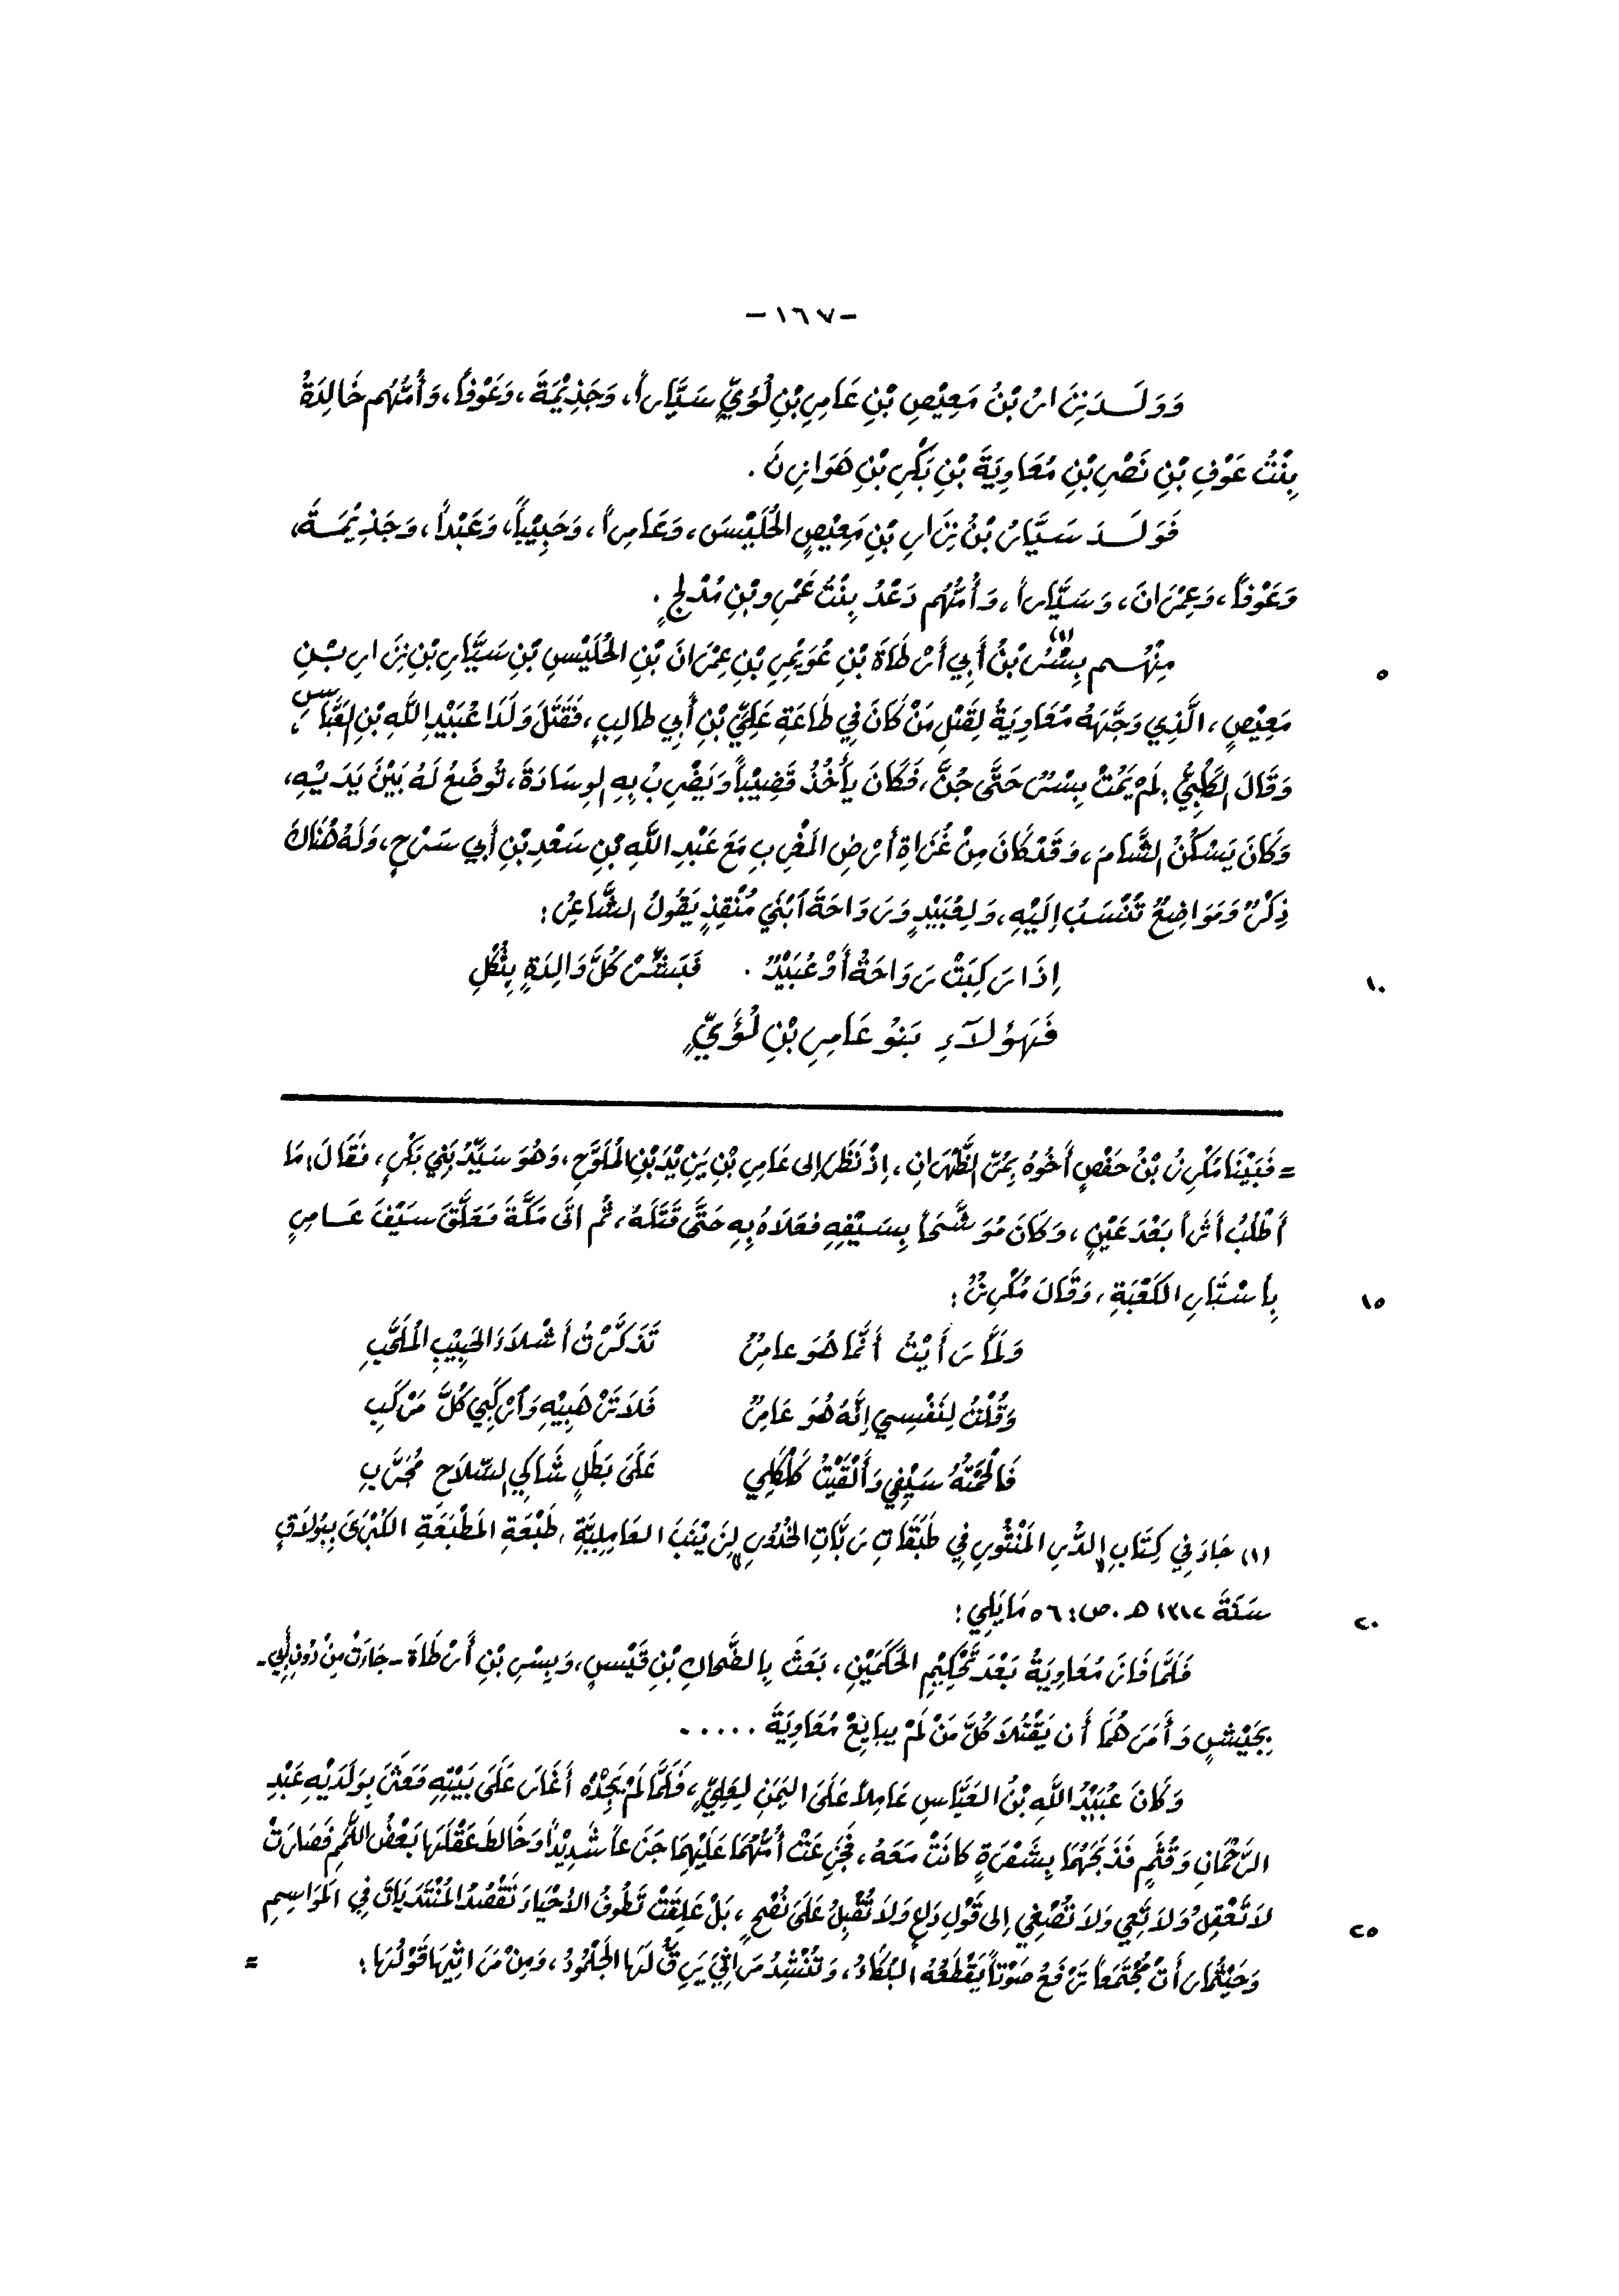 -١٦٧-
وَوَلَـدَ نِزَارُ بْنُ مَعِيْصِ بْنِ عَامِرِ بْنِ لُؤَيٍّ سَيَّاراً، وَجَذِيْمَةَ، وَعَوْفاً، وَأُمُّهُم خَالِدَةُ
بِنْتُ عَوْفِ بْنِ نَصْرِ بْنِ مُعَاوِيَةَ بْنِ بَكْرِ بْنِ هَوَازِنَ .
فَوَلَـدَ سَيَّارُ بْنُ نِزَارِ بْنِ مَعِيْصٍ الحُلَيْسَ، وَعَامِراً، وَحَبِيْباً، وَعَبْداً، وَجَذِيْمَـةَ،
وَعَوْفاً، وَعِمْرَانَ، وَسَيَّاراً، وَأُمُّهُم دَعْدُ بِنْتُ عَمْرِو بْنِ مُدْلِجٍ .
٥ مِنْهُـم بِسْرُ (١) بْنُ أَبِي أَرْطَاةَ بْنِ عُوَيْمِرِ بْنِ عِمْرَانَ بْنِ الحُلَيْسِ بْنِ سَيَّارِ بْنِ نِزَارِ بْـنِ
مَعِيْصٍ، الَّذِي وَجَّهَهُ مُعَاوِيَةُ لِقَتْلِ مَنْ كَانَ فِي طَاعَةِ عَلِيِّ بْنِ أَبِي طَالِبٍ، فَقَتَلَ وَلَدَا عُبَيْدِ اللَّهِ بْنِ العَبَّاسِ،
وَقَالَ الكَلْبِيُّ: لَمْ يَمُتْ بِسْرٌ حَتَّى جُنَّ، فَكَانَ يَأْخُذُ قَضِيْباً وَيَضْرِبُ بِهِ الوِسَادَةَ، تُوضَعُ لَهُ بَيْنَ يَدَيْهِ،
وَكَانَ يَسْكُنُ الشَّامَ، وَقَدْ كَانَ مِنْ غُزَاةِ أَرْضِ المَغْرِبِ مَعَ عَبْدِ اللَّهِ بْنِ سَعْدِ بْنِ أَبِي سَرْحٍ، وَلَهُ هُنَاكَ
ذِكْرٌ وَمَوَاضِعٌ تُنْسَبُ إِلَيْهِ، وَلِعُبَيْدٍ وَرَوَاحَةَ ابْنَي مُنْقِذٍ يَقُولُ الشَّاعِرُ:
١٠ إِذَا رَكِبَتْ رَوَاحَةُ أَوْ عُبَيْدٌ . فَبَشِّرْ كُلَّ وَالِدَةٍ بِثُكْلِ
فَهَؤُلآءِ بَنُو عَامِرِ بْنِ لُؤَيٍّ
= فَبَيْنَا مَكْرِزُ بْنُ حَفْصٍ أَخُوهُ بِمَرِّ الظَّهْرَانِ، إِذْ نَظَرَ إلى عَامِرِ بْنِ يَزِيْدَ بْنِ المُلَوَّحِ، وَهُوَ سَيِّدُ بَنِي بَكْرٍ، فَقَالَ: مَا
أَطْلُبُ أَثَراً بَعْدَ عَيْنٍ، وَكَانَ مُوَشَّحاً بِسَيْفِهِ فَعَلاَهُ بِهِ حَتَّى قَتَلَهُ، ثُم اتَى مَكَّةَ فَعَلَّقَ سَيْفَ عَـامِرٍ
١٥ بِأَسْتَارِ الكَعْبَةِ، وَقَالَ مَكْرِزٌ:
وَلَمَّا رَأَيْتُ أَنَّمَا هُوَ عامِرٌ تَذَكَّرْتُ أَشْلاَءَ الحَبِيْبِ المُلَحَّبِ
وَقُلْتُ لِنَفْسِي إِنَّهُ هُوَ عَامِرٌ فَلاَ تَرْهَبِيْهِ وَارْكَبِي كُلَّ مَرْكَبِ
فَأَلْحَمْتُهُ سَيْفِي وَأَلْقَيْتُ كَلْكَلِي عَلَى بَطَلٍ شَاكِي السِّلاَحِ مُجَرَّبِ
(١) جَاءَ فِي كِتَابِ "الدُّرِ المَنْثُورِ فِي طَبَقَاتِ رَبَّاتِ الخُدُورِ" لِزَيْنَبَ العَامِلِيَّةِ، طَبْعَةِ المَطْبَعَةِ الكُبْرَى بِبُولاَقٍ
٢٠ سَنَةَ ١٣١٢ هـ . ص: ٥٦ مَايَلِي:
فَلَمَّا كَانَ مُعَاوِيَةُ بَعْدَ تَحْكِيْمِ الحَكَمَيْنِ، بَعَثَ بِالضَّحَاكِ بْنِ قَيْسٍ، وَبِسْرِ بْنِ أَرْطَاةَ - جَاءَتْ مِنْ دُونِ أَبِي -
بِجَيْشٍ وَأَمَرَهُمَا أَن يَقْتُلاَ كُلَّ مَنْ لَمْ يبايِعْ مُعَاوِيَةَ .....
وَكَانَ عُبَيْدُ اللَّهِ بْنُ العَبَّاسِ عَامِلاً عَلَى اليَمَنِ لِعَلِيٍّ، فَلَمَّا لَمْ يَجِدْهُ أَغَارَ عَلَى بَيْتِهِ فَعَثَرَ بِوَلَدَيْهِ عَبْدِ
الرَّحْمَانِ وَقُثَمٍ فَذَبَحَهُمَا بِشَفْرَةٍ كَانَتْ مَعَهُ، فَجَزِعَتْ أُمُّهُمَا عَلَيْهِمَا جَزَعاً شَدِيْداً وَخَالطَ عَقْلَهَا بَعْضُ اللَّمَمِ فَصَارَتْ
٢٥ لاَ تَعْقِلُ وَلاَ تَعِي وَلاَ تُصْغِي إلى قَوْلِ دَاعٍ وَلاَ تُقْبِلُ عَلَى نُصْحٍ، بَلْ عَلِقَتْ تَطُوفُ الأَحْيَاءَ تَقْصُدُ المُنْتَدَيَاتَ فِي المَوَاسِمِ
وَحَيْثُمَا رَأَتْ مُجْتَمَعاً تَرْفَعُ صَوْتاً يَقْطَعُهُ البُكَاءُ، وَتُنْشِدُ مَرَاثِيَ يَرِقُّ لَهَا الجَلْمُودُ، وَمِنْ مَرَاثِيْهَا قَوْلُهَا: =